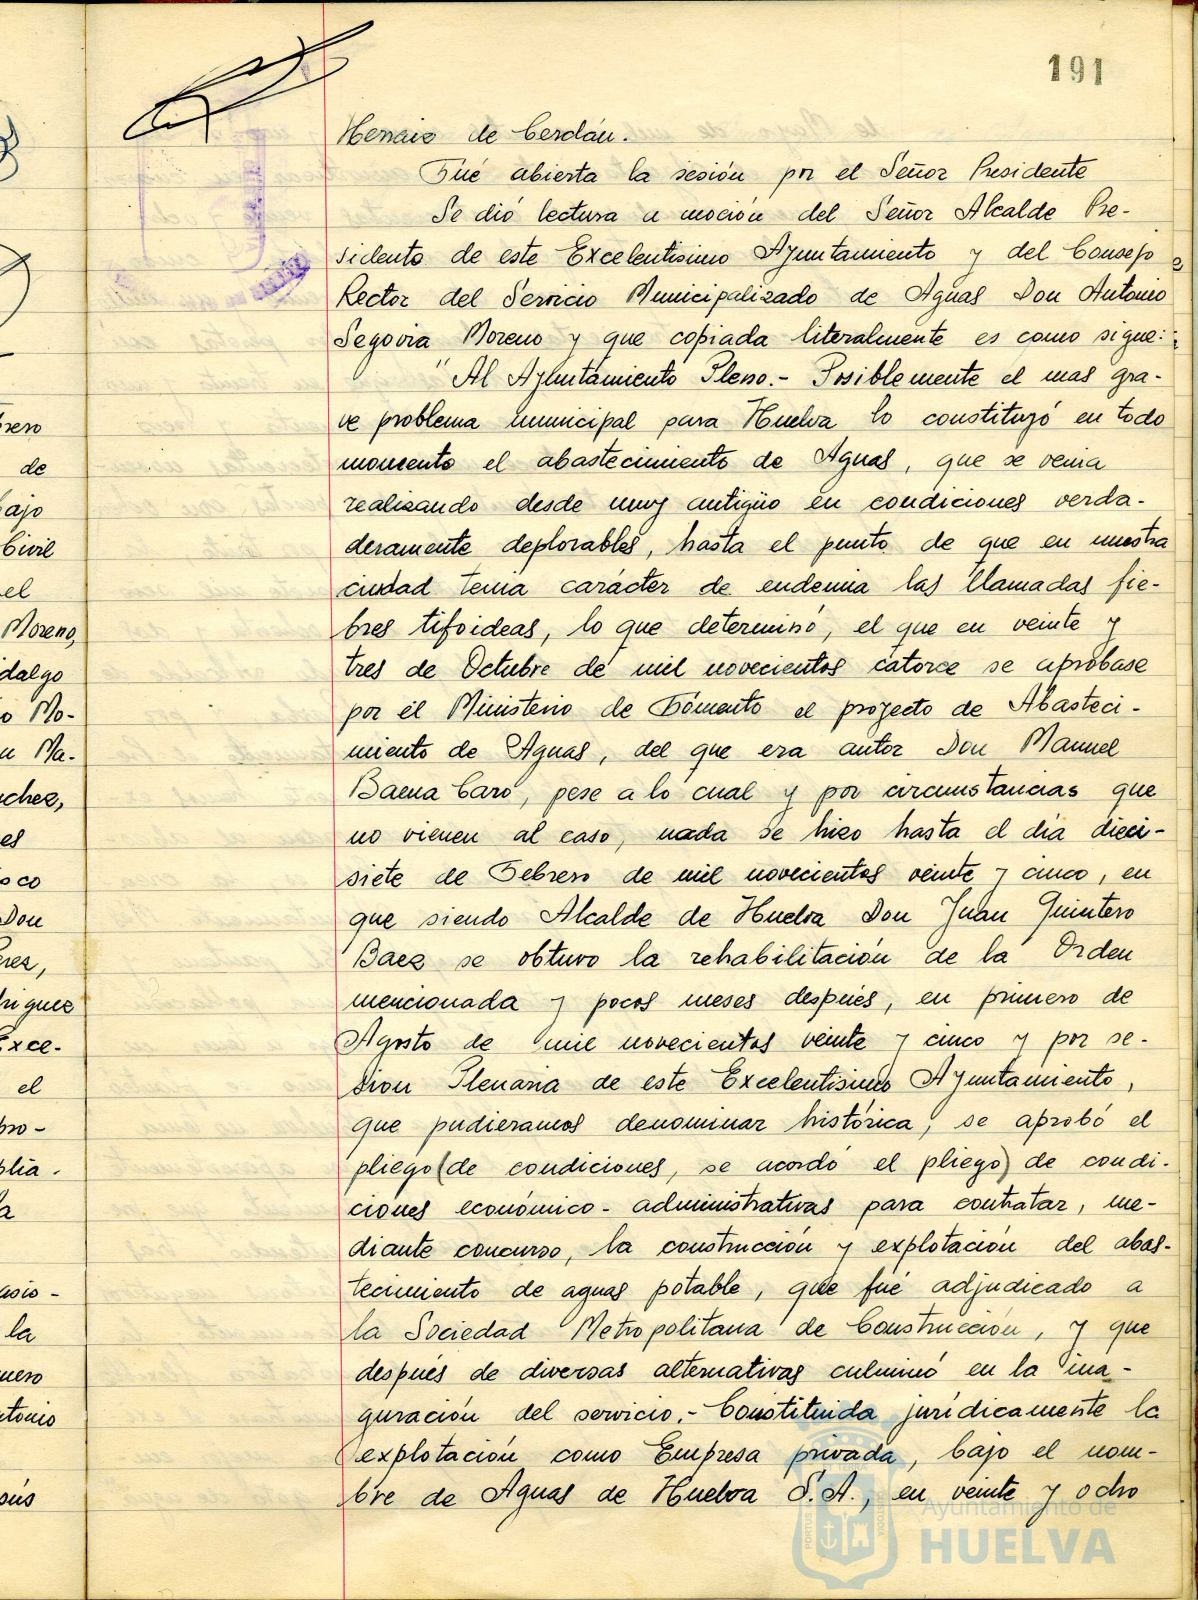 191
de Cerdán.
Fué abierta la sesión por el Señor Presidente
Se dió lectura a moción del Señor Alcalde Pre-
sidente de este Excelentisimo Ayuntamiento y del Consejo
Rector del Servicio Municipalizado de Aguas Don Antonio
Segovia Moreno y que copiada literalmente es como sigue:
" Al Ayuntamiento Pleno.- Posiblemente el mas gra-
ve problema municipal para Huelva lo constituyó en todo
momento el abastecimiento de Aguas, que se venia
realizando desde muy antigüo en condiciones verda-
deramente deplorables, hasta el punto de que en nuestra
ciudad tenia carácter de endemia las llamadas fie-
bres tifoideas, lo que determinó, el que en veinte y
tres de Octubre de mil novecientos catorce se aprobase
por el Ministerio de Fomento el proyecto de Abasteci-
miento de Aguas, del que era autor Don Manuel
Baena Caro, pese a lo cual y por circunstancias que
no vienen al caso, nada se hizo hasta el dia dieci-
siete de Febrero de mil novecientos veinte y cinco, en
que siendo Alcalde de Huelva Don Juan Quintero
Baez se obtuvo la rehabilitación de la Orden
mencionada y pocos meses después, en primero de
Agosto de mil novecientos veinte y cinco y por se-
sion Plenaria de este Excelentisimo Ayuntamiento,
que pudieramos denominar histórica, se aprobó el
pliego (de condiciones, se acordó el pliego) de condi-
ciones económico-administrativas para contratar, me-
diante concurso, la construcción y explotación del abas-
tecimiento de aguas potable, que fué adjudicado a
la Sociedad Metropolitana de Construcción, y que
después de diversas alternativas culminó en la ina-
guración del servicio.- Constituida jurídicamente la
explotación como Empresa privada, bajo el nom-
bre de Aguas de Huelva S.A., en veinte y ocho
Ayuntamiento de
HUELVA
de
Civil
el
Moreno,
Mo-
Ma-
Don
Exce-
el
la